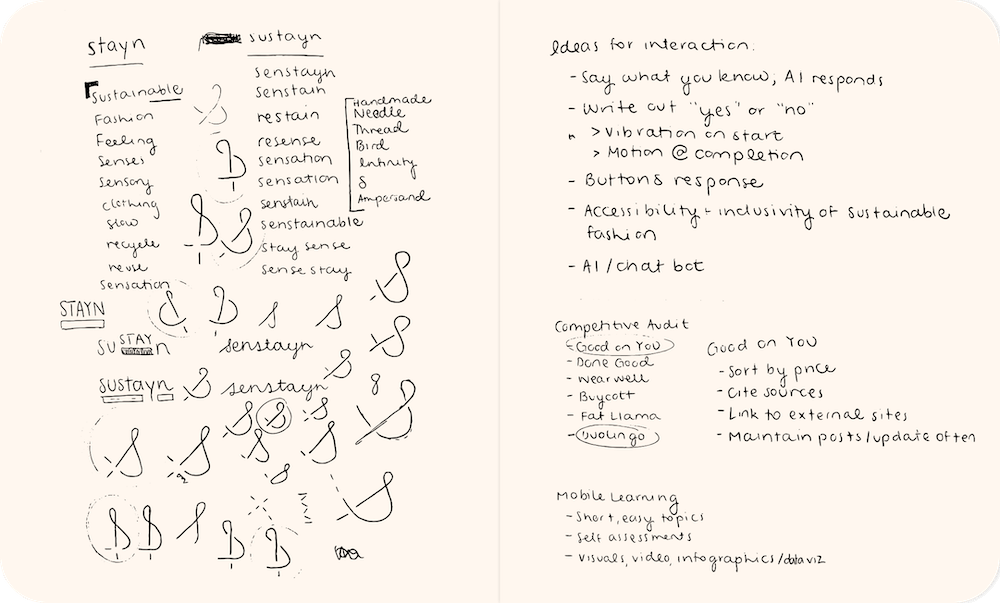 stayn
sustayn
sustainable
Fashion
Feeling
Senses
Sensory
clothing
slow
recycle
reuse
sensation
senstayn
senstain
restain
resense
sensation
sensation
senstain
senstainable
stay sense
sense stay
Handmade
Needle
Thread
Bird
Infinity
8
Ampersand
STAYN
SUSTAYN
senstayn
sustayn
senstayn
8
Ideas for interaction.
- Say what you know, AI responds
- Write out "yes" or "no"
> Vibration on start
> Motion @ completion
- Buttons response
- Accessibility + inclusivity of sustainable
fashion
- AI / chat bot
Competitive Audit
- Good on You
- Done Good
- Wearwell
- Buycott
- Fat Llama
- Duolingo
Good on You
- Sort by price
- Cite sources
- Link to external sites
- Maintain posts/update often
Mobile Learning
- Short, easy topics
- Self assessments
- Visuals, video, infographics/data viz